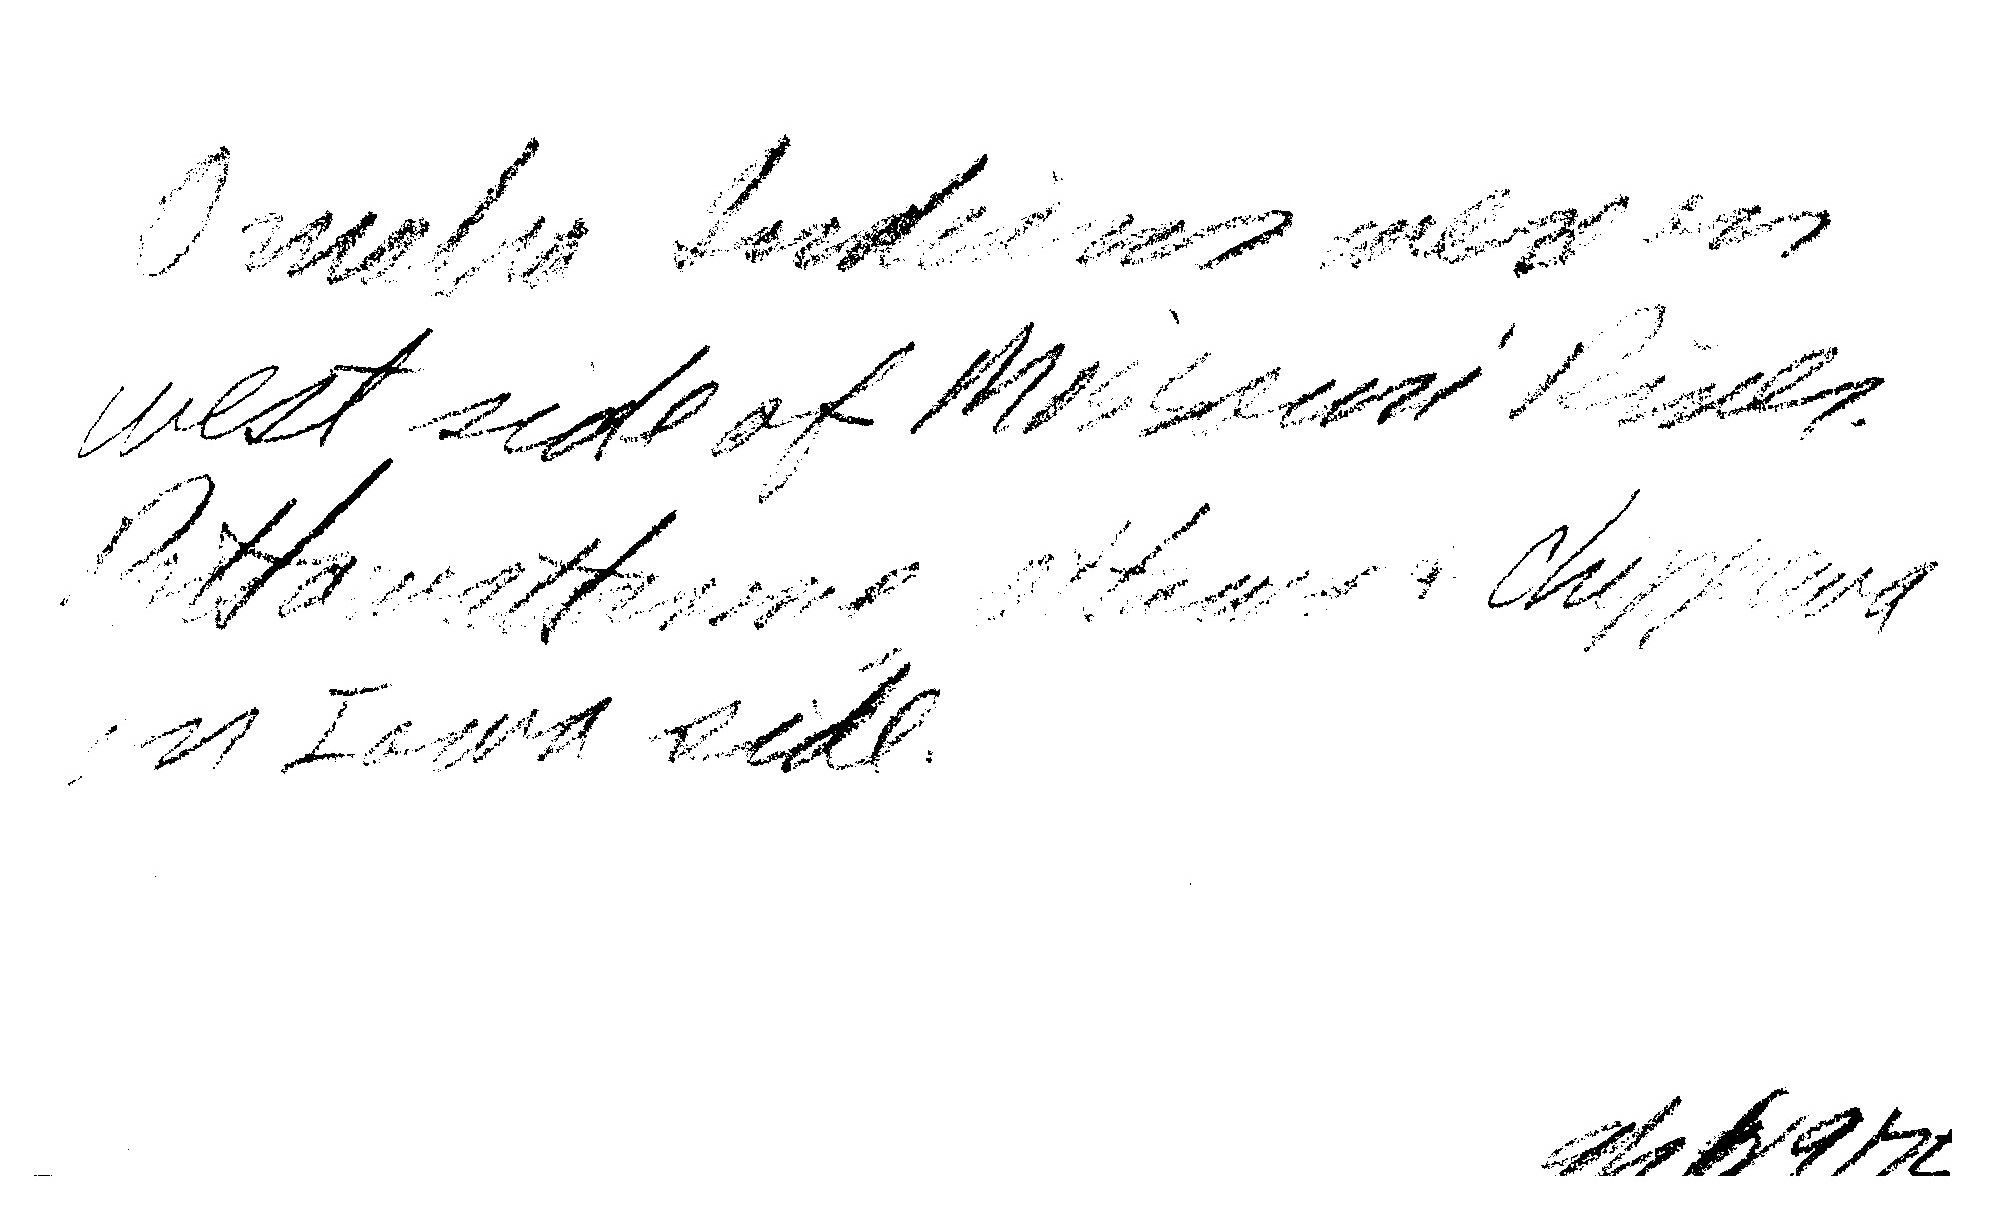 Omaha Indians were on
west side of Missouri River.
Pottawattamie ottawa & Chippewa
on Iowa side.